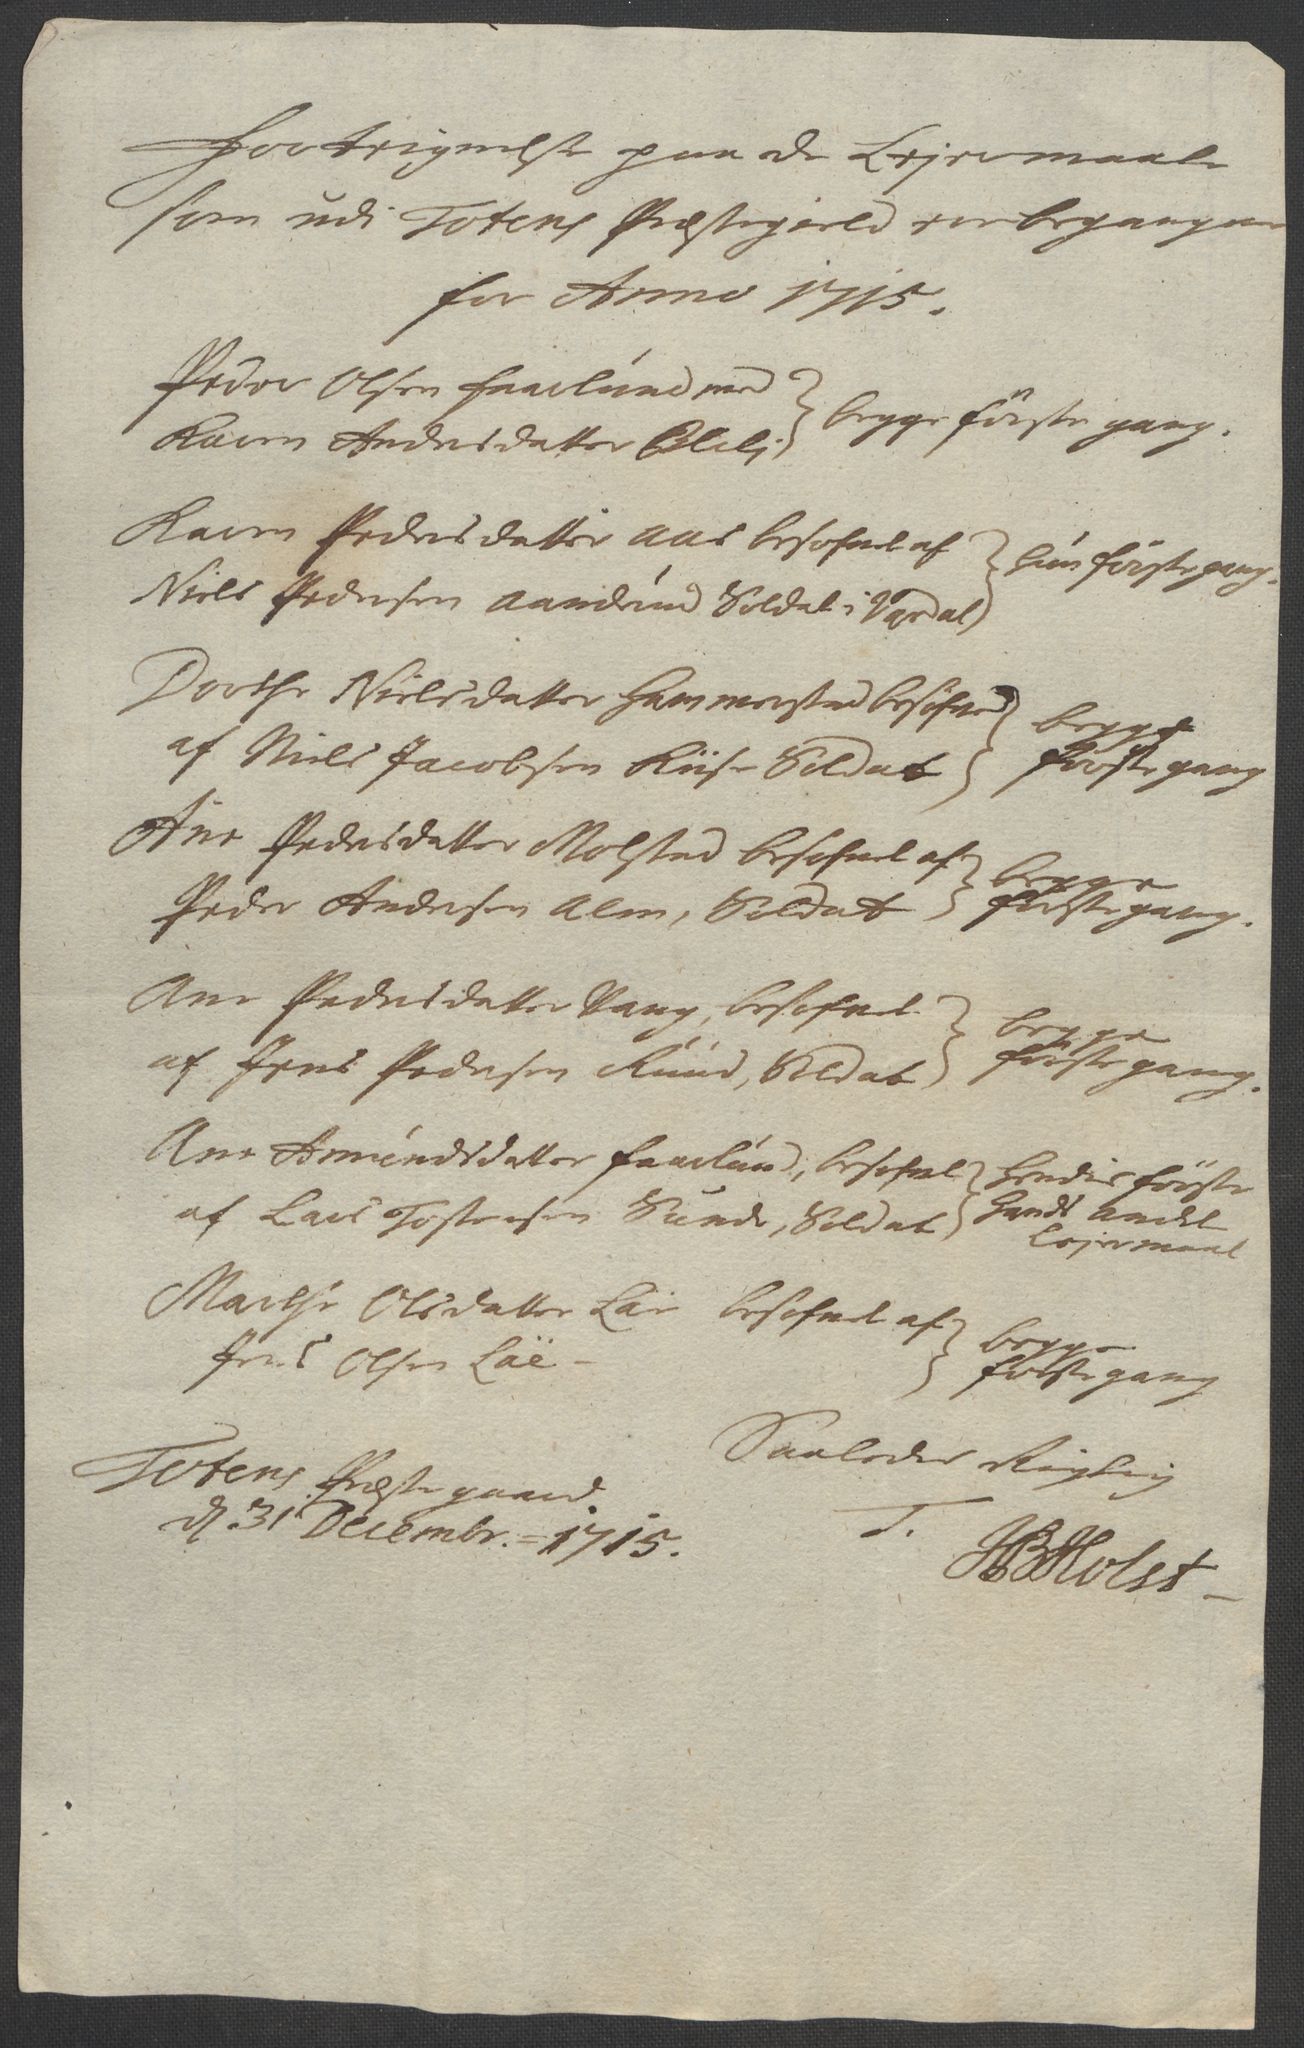 Forteignelse paa de Leiermaale
som udi Totens Præstegield ere begangne
for Anno 1715.
Peder Olsen Faarlund med
Karen Andersdatter } begge förste gang.
Karen Pedersdatter Aas besofvet af
Niels Pedersen Soldat i Vardal } hun förste gang.
Dorthe Nielsdatter Hammerstad besofvet
af Niels Jacobsen Riise Soldat } begge förste gang
Ane Pedersdatter Molstad besofvet af
Peder Andersen Alm, Soldat } begge förste gang.
Ane Pedersdatter Vang, besofvet
af Jens Pedersen Ruud, Soldat } begge förste gang.
Ane Amundsdatter Faarlund, besofvet
af Lars Tostensen Sunde, Soldat } Hendes förste
Hands andet
Leiermaal
Marthe Olsdatter Læe besofvet af
Jens Olsen Läe - } begge förste gang
Totens Præstegaard
d. 31 Decembr. = 1715.
Saaledes Rigtig
T. HBHolst -